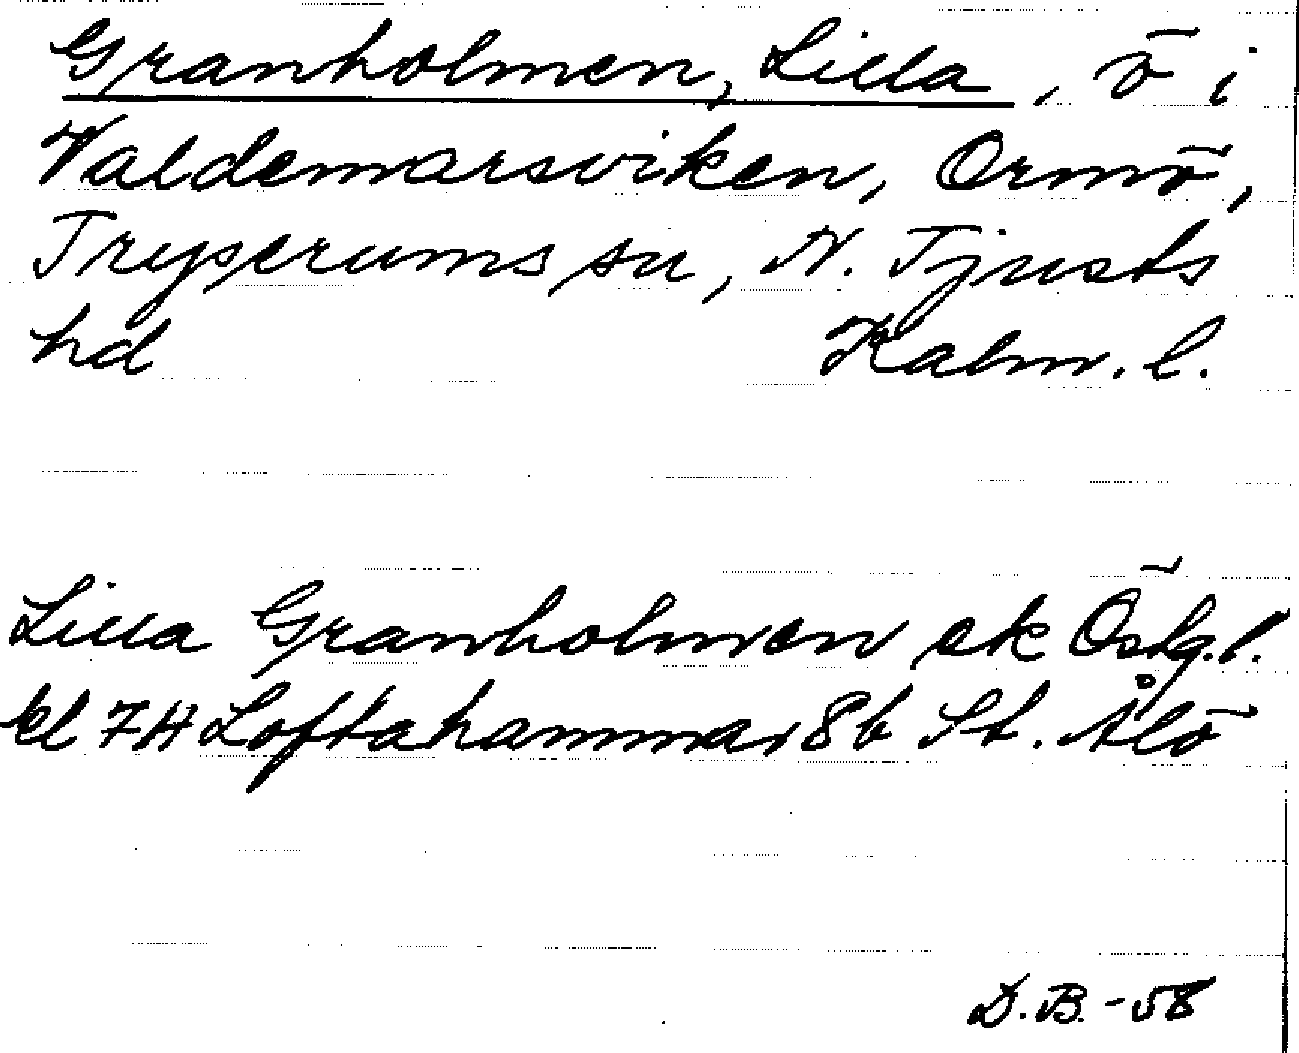 Granholmen, Lilla, ö i
Valdemarsviken, Ormö,
Tryserums sn, N. Tjusts
hd Kalm. l.
Lilla Granholmen ek Östg. l.
bl 7H Loftahammar 8b St. Ålö
D.B. -58